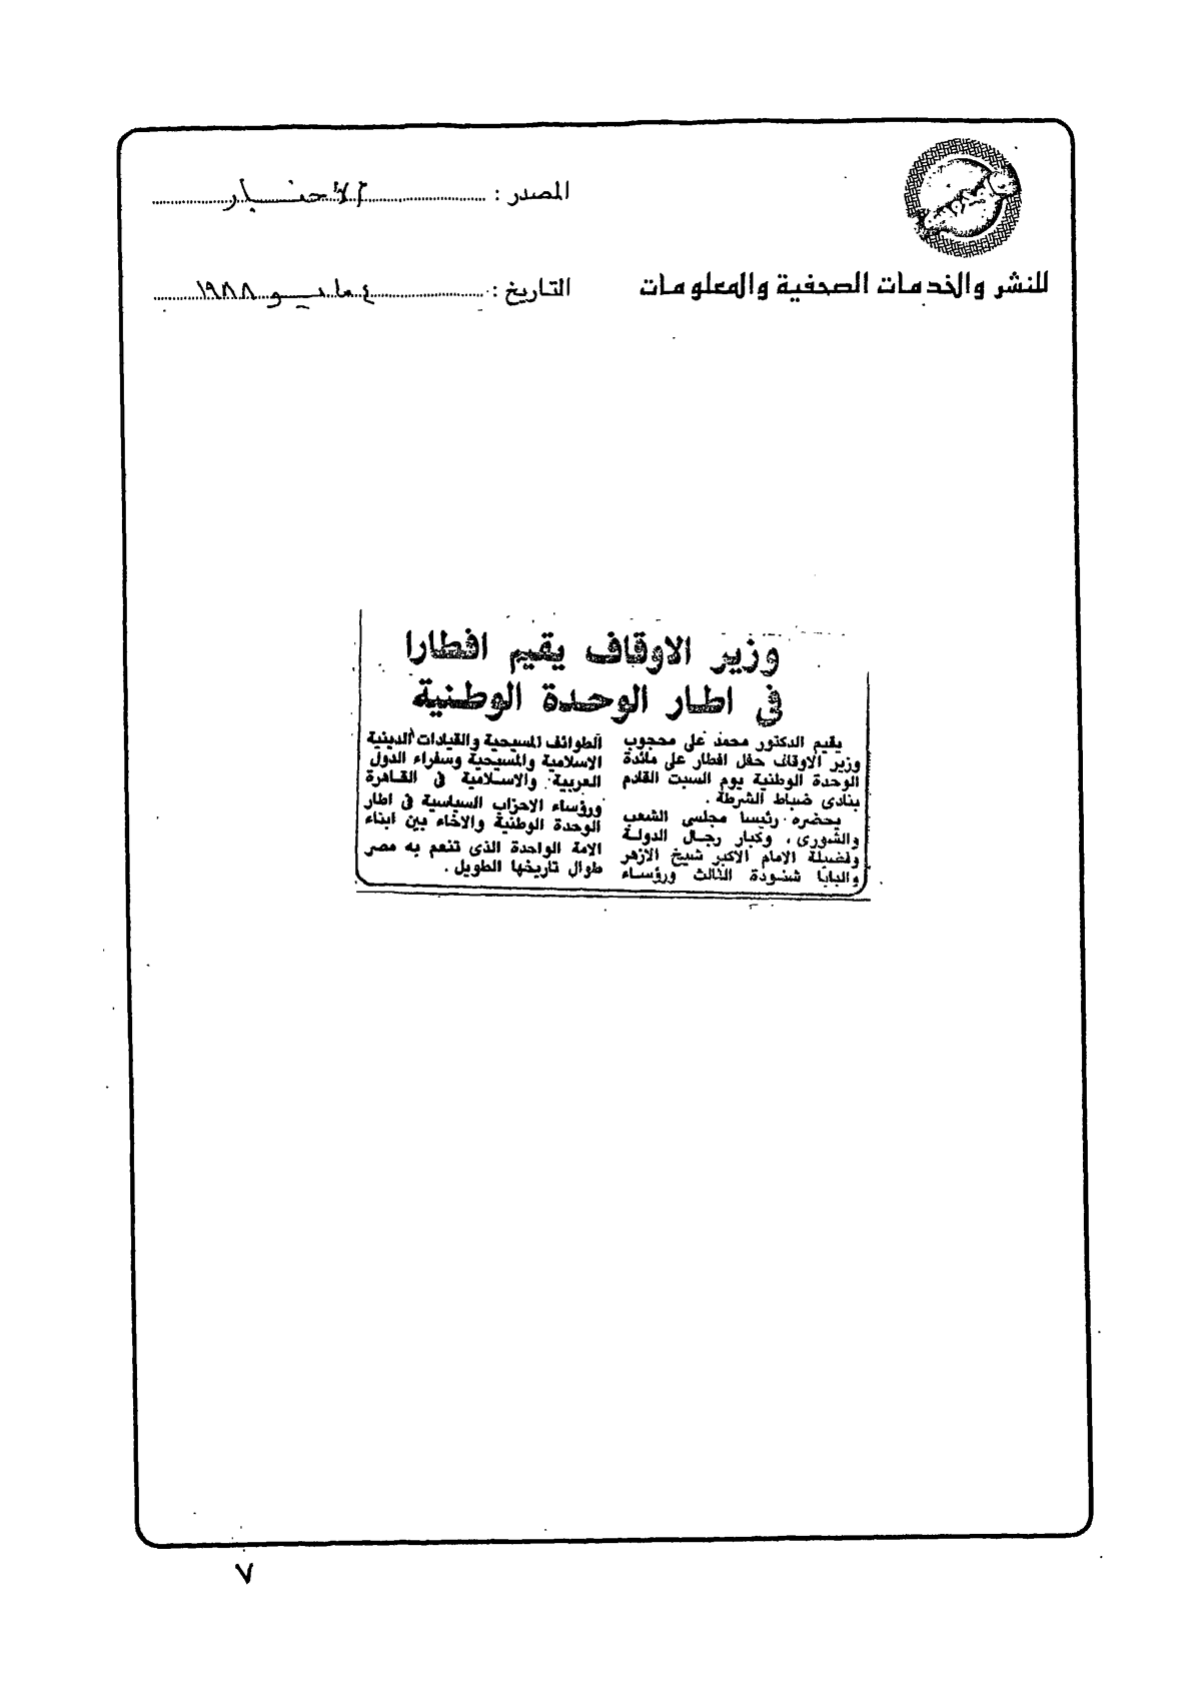 المصدر : الأخبار
للنشر والخدمات الصحفية والمعلومات
التاريخ : ٤ مايو ١٩٨٨
وزير الاوقاف يقيم افطارا
فى اطار الوحدة الوطنية
يقيم الدكتور محمد على محجوب
وزير الاوقاف حفل افطار على مائدة
الوحدة الوطنية يوم السبت القادم
بنادى ضباط الشرطة .
يحضره رئيسا مجلسى الشعب
والشورى ، وكبار رجال الدولة
وفضيلة الامام الاكبر شيخ الازهر
والبابا شنودة الثالث ورؤساء
الطوائف المسيحية والقيادات الدينية
الاسلامية والمسيحية وسفراء الدول
العربية والاسلامية فى القاهرة
ورؤساء الاحزاب السياسية فى اطار
الوحدة الوطنية والاخاء بين ابناء
الامة الواحدة الذى تنعم به مصر
طوال تاريخها الطويل .
٧